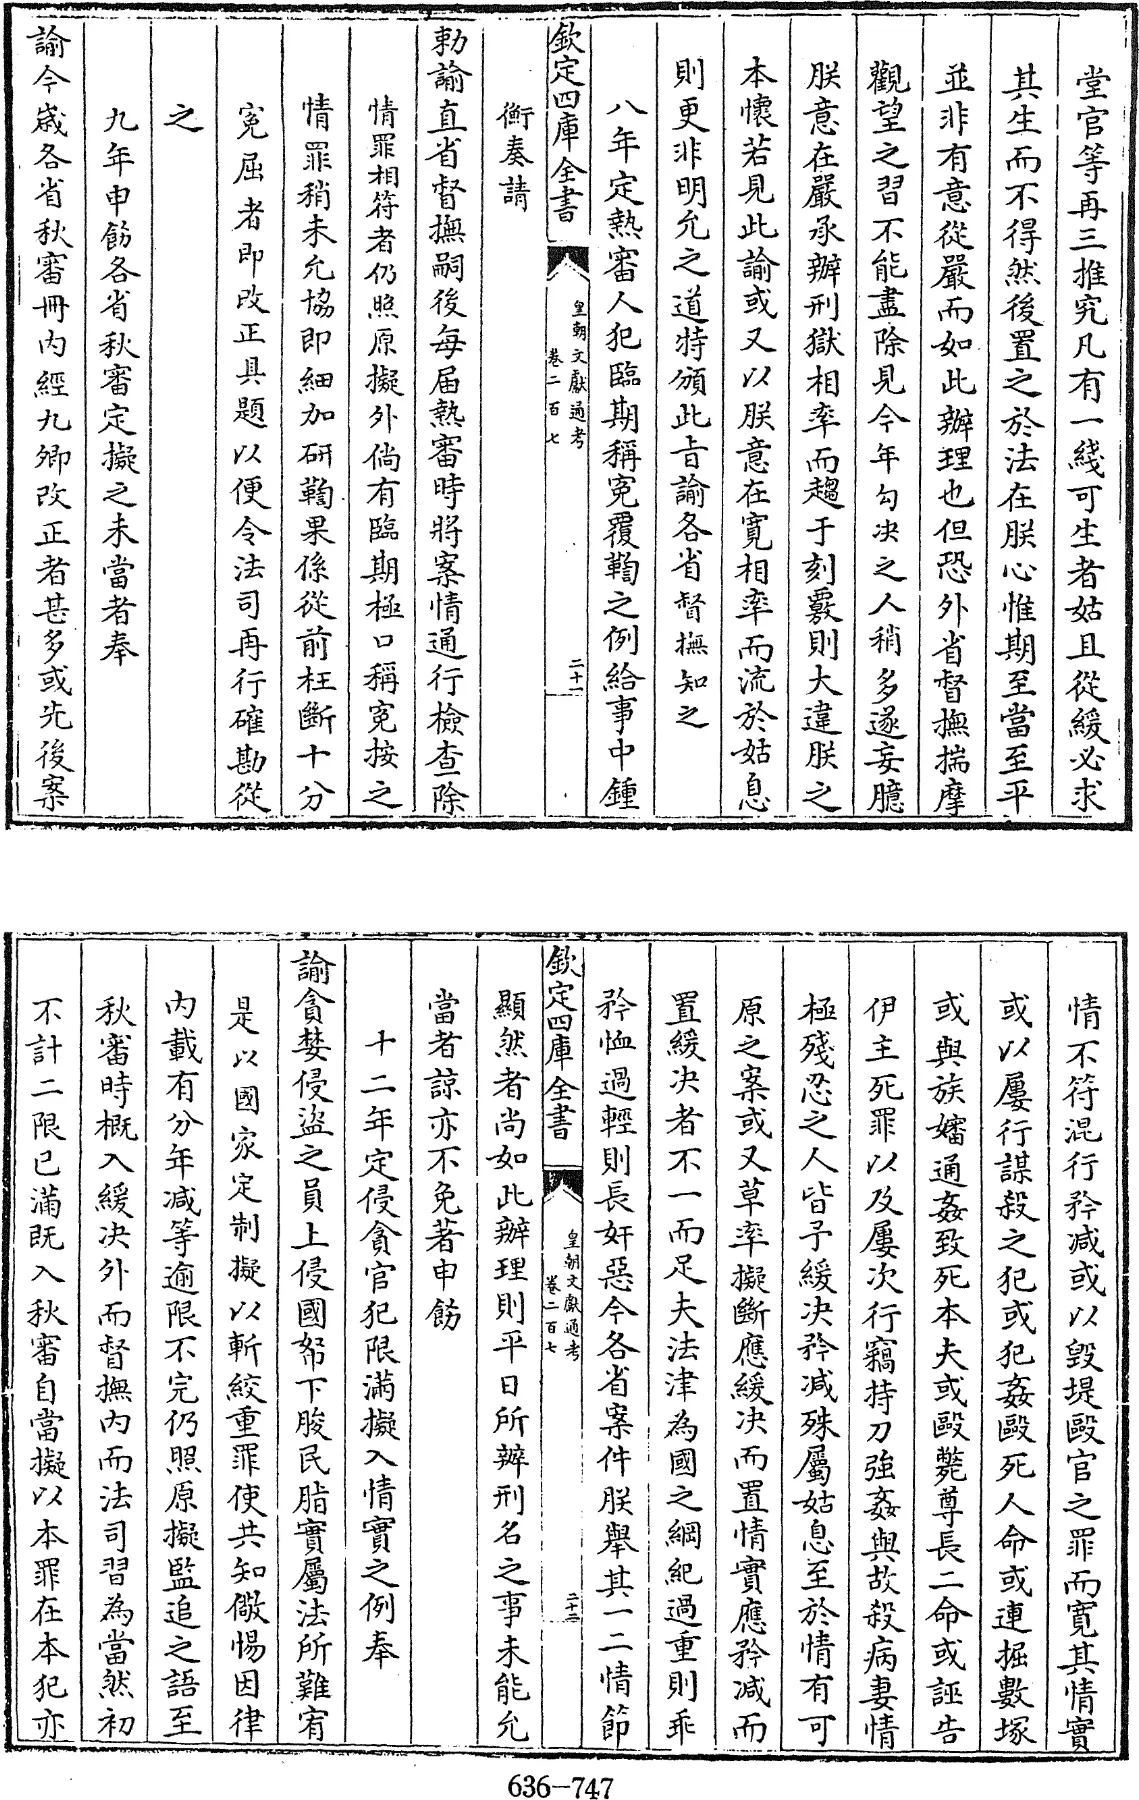 堂官等再三推究凡有一綫可生者姑且從緩必求
其生而不得然後置之於法在朕心惟期至當至平
並非有意從嚴而如此辦理也但恐外省督撫揣摩
觀望之習不能盡除見今年勾決之人稍多遂妄臆
朕意在嚴承辦刑獄相率而趨于刻覈則大違朕之
本懷若見此諭或又以朕意在寛相率而流於姑息
則更非明允之道特頒此旨諭各省督撫知之
八年定熱審人犯臨期稱寃覆鞫之例給事中鍾
欽定四庫全書
皇朝文獻通考
卷二百七
二十一
衡奏請
勅諭直省督撫嗣後每届熱審時將案情通行檢查除
情罪相符者仍照原擬外倘有臨期極口稱寃按之
情罪稍未允協即細加研鞫果係從前枉斷十分
寃屈者即改正具題以便令法司再行確勘從
之
九年申飭各省秋審定擬之未當者奉
諭今歲各省秋審冊内經九卿改正者甚多或先後案
情不符混行矜減或以毀堤毆官之罪而寛其情實
或以屢行謀殺之犯或犯姦毆死人命或連掘數塚
或與族嬸通姦致死本夫或毆斃尊長二命或誣告
伊主死罪以及屢次行竊持刀強姦與故殺病妻情
極殘忍之人皆予緩决矜減殊屬姑息至於情有可
原之案或又草率擬斷應緩决而置情實應矜減而
置緩决者不一而足夫法津為國之綱紀過重則乖
矜恤過輕則長奸惡今各省案件朕舉其一二情節
欽定四庫全書
皇朝文獻通考
卷二百七
二十二
顯然者尚如此辦理則平日所辦刑名之事未能允
當者諒亦不免著申飭
十二年定侵貪官犯限滿擬入情實之例奉
諭貪婪侵盜之員上侵國帑下朘民脂實屬法所難宥
是以國家定制擬以斬絞重罪使共知儆惕因律
内載有分年减等逾限不完仍照原擬監追之語至
秋審時概入緩决外而督撫内而法司習為當然初
不計二限已滿旣入秋審自當擬以本罪在本犯亦
636-747